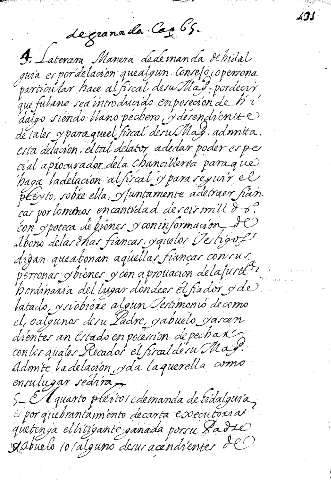 de granada. Cap 65.
4. La tercera Manera de demanda de hidal
guia es por delacion que algun Consejo, o persona
particular hace al fiscal de su Mag. por decir
que fulano se a introducido en posesion de hi
dalgo siendo llano pechero, y desendiente
de tales, y para que el fiscal de su Mag. admita
esta delacion, el tal delator a de dar poder espe
cial a procurador de la Chancilleria para que
haga la delacion al fiscal y para seguir el
pleyto sobre ella, y juntamente a de traer fian
cas por lo menos en cantidad de seis mill
con ypoteca de bienes y con informacion de
abono de las dichas fiancas, y que los Testigos
digan que abonan aquellas fiancas con sus
personas y bienes, y con aprovacion de la justa
hordinaria del lugar donde es el fiador, y de
latado, y si obiere algun Testimonio de como
el, o algunos de su Padre, y abuelo, y ascen
dientes an estado en posesion de pecheros
con los quales Recados el fiscal de su Mag.
admite la delacion, y da la querella como
en su lugar se dira
5 El quarto pleito i demanda de hidalguia
es por quebrantamiento de carta executorias
que tenga el litigante ganada por su Padre
y abuelo, o alguno de sus acendientes de